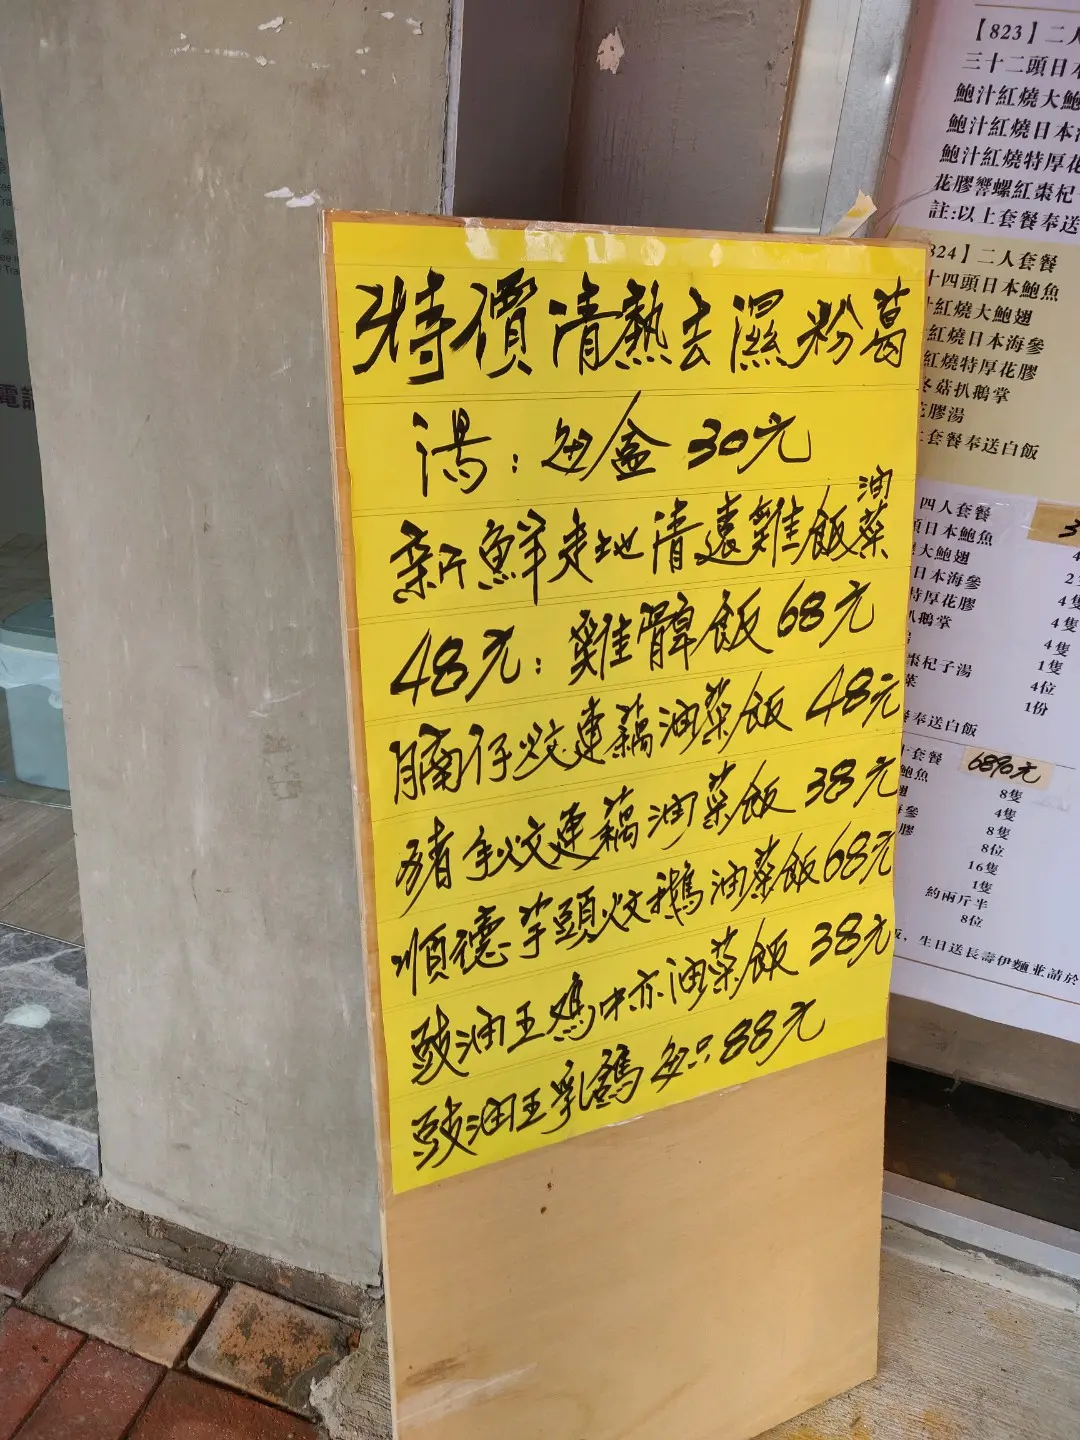 特價清熱去濕粉葛
湯：每盒30元
新鮮走地清遠雞飯油菜
48元：雞髀飯68元
腩仔炆蓮藕油菜飯 48元
豬手炆蓮藕油菜飯 38元
順德芋頭炆鵝油菜飯68元
豉油王
油菜飯 38元
豉油王乳鴿每只88元
【823】二人
三十二頭日本
鮑汁紅燒大鮑
鮑汁紅燒日本海
鮑汁紅燒特厚花
花膠響螺紅棗杞
註:以上套餐奉送
824】二人套餐
十四頭日本鮑魚
紅燒大鮑翅
紅燒日本海參
紅燒特厚花膠
冬菇扒鵝掌
花膠湯
套餐奉送白飯
四人套餐
頭日本鮑魚
大鮑翅
日本海參
特厚花膠
扒鵝掌
棗杞子湯
菜
奉送白飯
4隻
4隻
4隻
1隻
4位
1份
套餐 6890元
鮑魚 8隻
翅 4隻
參 8隻
膠 8位
16隻
1隻
約兩斤半
8位
飯，生日送長壽伊麵並請於
電話